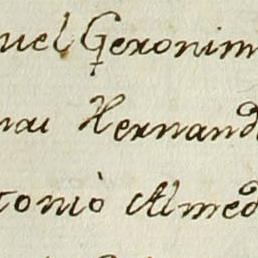 uel Geronim
nai Hernand
tonio Almed